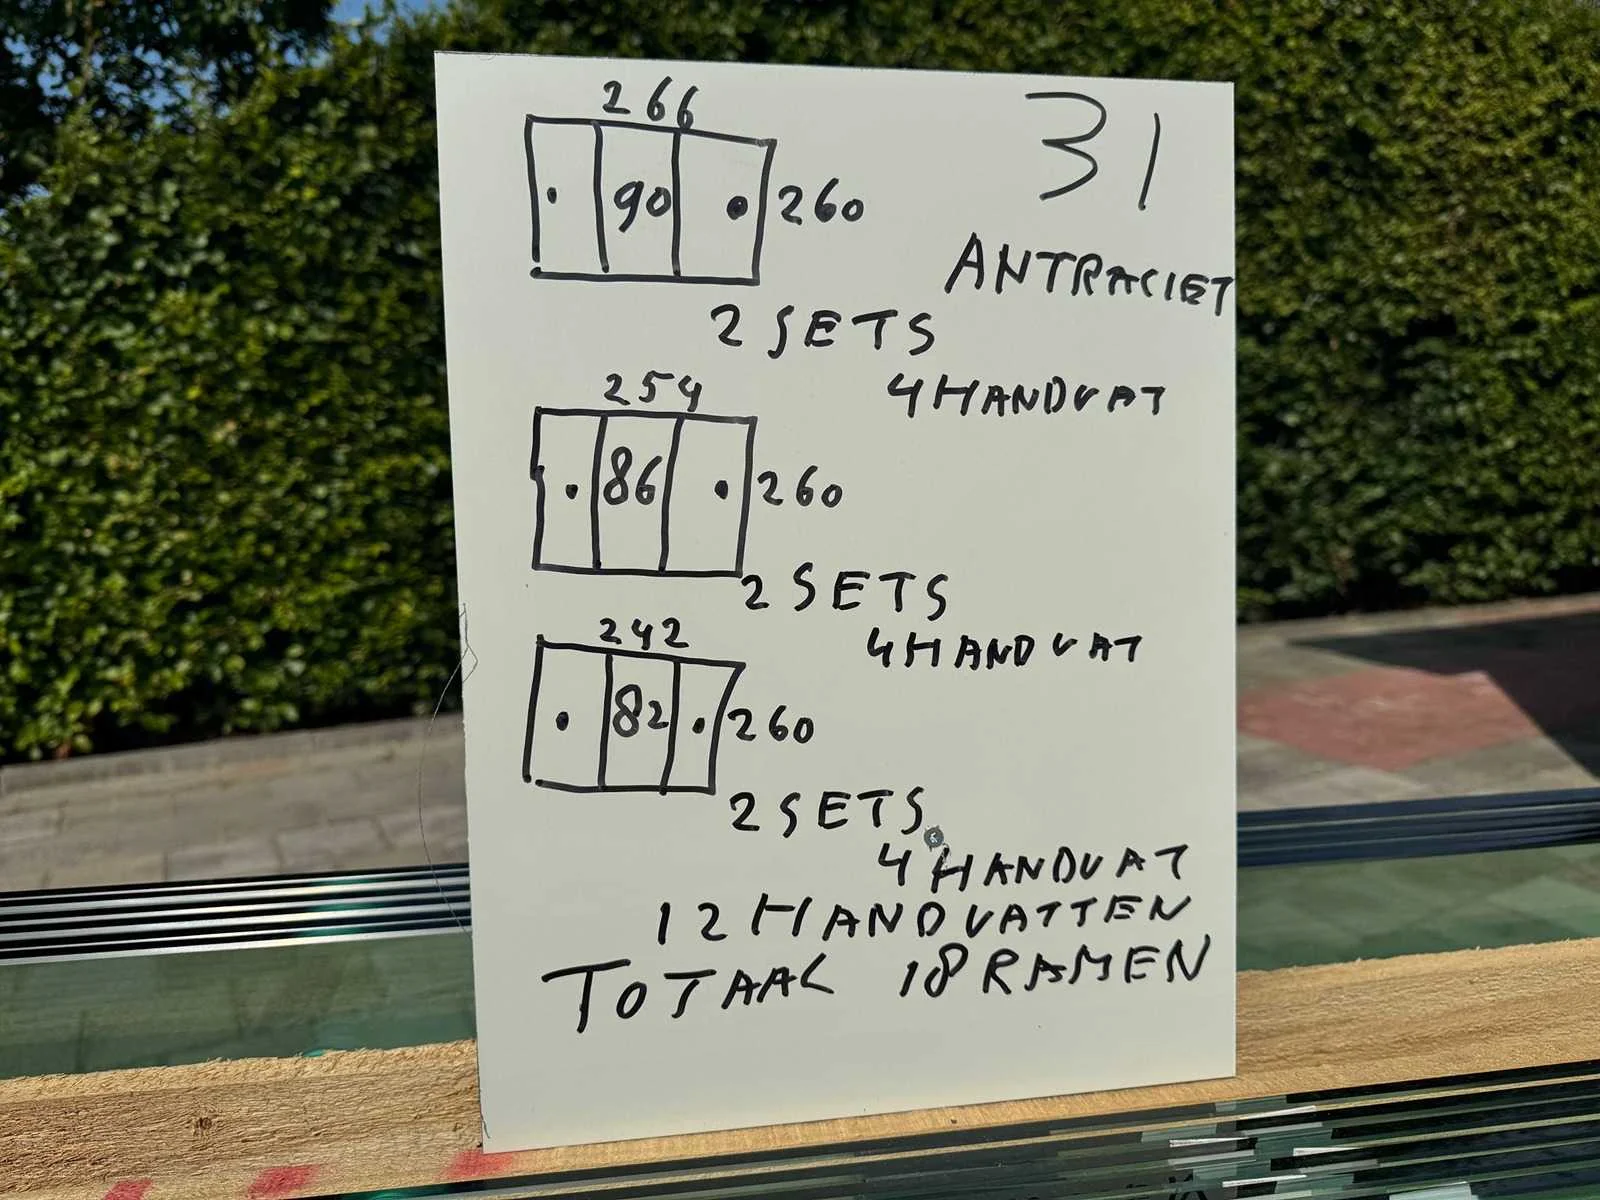 266
31
90
260
ANTRACIET
2 SETS
4 HANDVAT
254
86
260
2 SETS
4 HANDVAT
242
82
260
2 SETS
4 HANDVAT
12 HANDVATTEN
TOTAAL 18 RAMEN